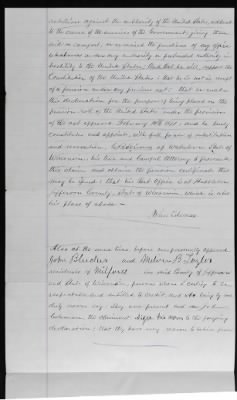 rebellion against the authority of the United States, adhered
to the cause of the enemies of the Government, giving them
aid or comfort, or exercised the functions of any office
whatsoever under any authority or pretended authority in
hostility to the United States; that he will support the
Constitution of the United States; that he is not in receipt
of a pension under any previous act; that he makes
this declaration for the purpose of being placed on the
pension roll of the United States under the provision
of the act approved February 14th 1871; and he hereby
constitutes and appoints, with full power of substitution
and revocation, of Watertown State of
Wisconsin his true and lawful Attorney to prosecute
this claim and obtain the pension certificate that
may be issued; that his Post Office is at
Jefferson County, State of Wisconsin, which is also
his place of abode.
Also at the same time before me personally appeared
John and Melvin B Taylor
residents of Milford in said County of Jefferson
and State of Wisconsin, persons whom I certify to be
respectable and entitled to credit, and who being by me
duly sworn say they were present and saw
the claimant sign his name to the foregoing
declaration; that they have every reason to believe from